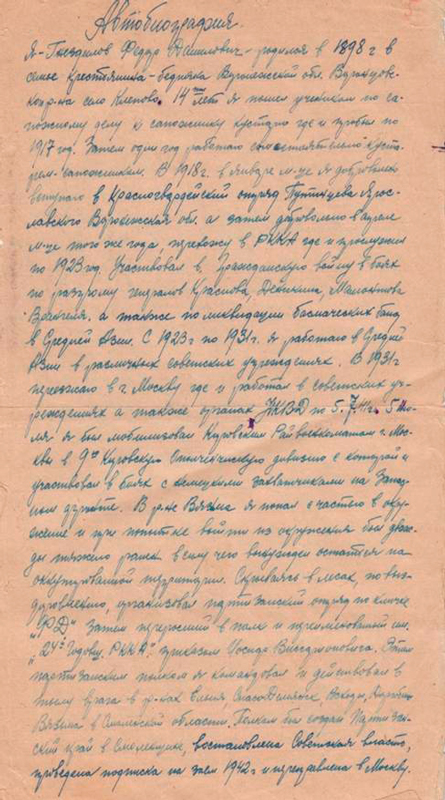 Автобиография.
Я - Гнездилов Федор Данилович - родился в 1898 г в
семье крестьянина - бедняка Воронежской обл. Воронцов-
ского р-на село Клепово. 14ти лет я пошел учеником по са-
пожному делу к сапожнику кустарю где и пробыл по
1917 год. Затем один год работаю самостоятельно куста-
рем-сапожником. В 1918 г. в январе м-це я добровольно
вступаю в Красногвардейский отряд
Воронежская обл. а затем добровольно в апреле
м-це того же года, перехожу в РККА где и прослужил
по 1923 год. Участвовал в гражданскую войну в боях
по разгрому генералов Краснова, Деникина, Мамонтова
Врангеля. а также по ликвидации басмаческих банд
в Средней Азии. С 1923 г по 1931 г. я работаю в Средней
Азии в различных советских учреждениях. В 1931 г
переезжаю в г. Москву где и работал в советских уч-
реждениях а также органах НКВД по 5.7 5 Ию-
ля я был мобилизован Кировским Райвоенкоматом г. Мос-
квы в 9ю Кировскую дивизию с которой и
участвовал в боях с немецкими захватчиками на Запад-
ном фронте. В р-не Вязьма я попал с частью в окру-
жение и при попытке выйти из окружения был дваж-
ды тяжело ранен в силу чего вынужден остаться на
оккупированной территории. Скрываясь в лесах, по выз-
доровлению, организовал партизанский отряд по кличке
"ФД" Затем переросший в полк и переименованный им.
"24й Годовщ. РККА". приказом Иосифа Виссарионовича.
партизанским полком я командовал и действовал в
тылу врага в р-нах Ельня, Спасо-Деменск, Всходы,
Вязьма в Смоленской области. Полком был создан Партизан-
ский край в Смоленщине, восстановлена Советская власть,
проведена подписка на заем 1942 г и переправлена в Москву.